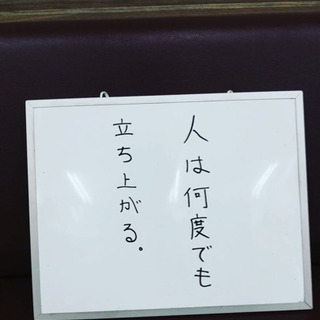 人は何度でも
立ち上がる。